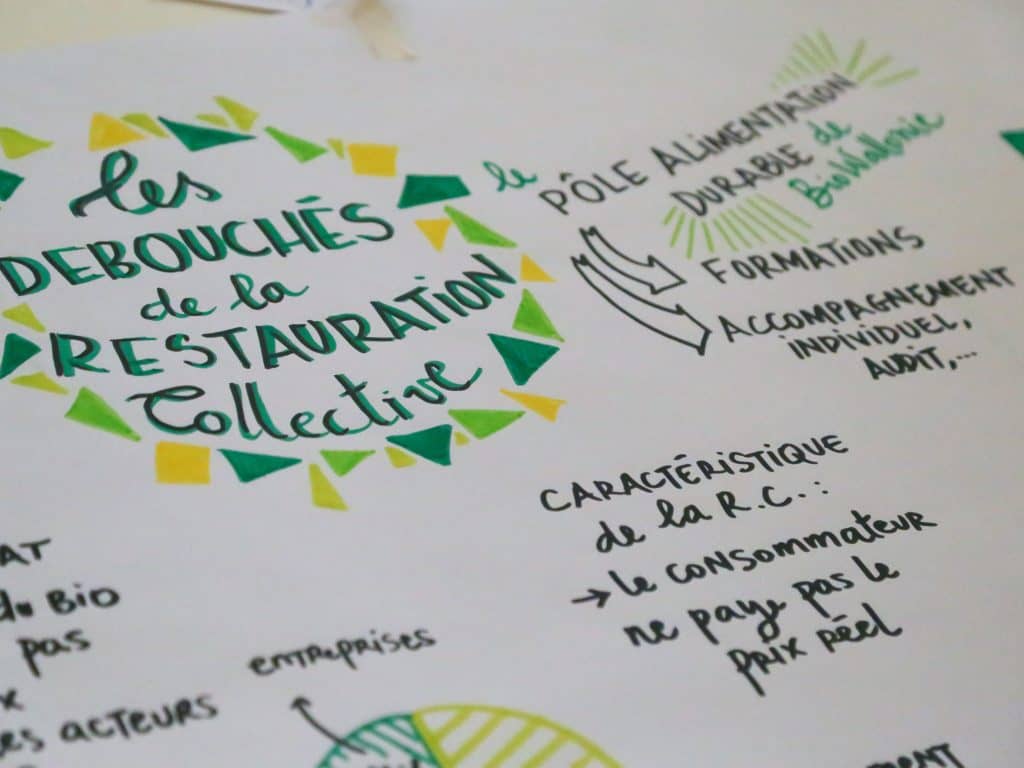 les
DEBOUCHÉS
de la
RESTAURATION
Collective
le PÔLE ALIMENTATION
DURABLE de
BioWallonie
FORMATIONS
ACCOMPAGNEMENT
INDIVIDUEL,
AUDIT,...
CARACTÉRISTIQUE
de la R.C. :
→ le consommateur
ne paye pas le
prix réel
AT
du BIO
pas
x
es acteurs
entreprises